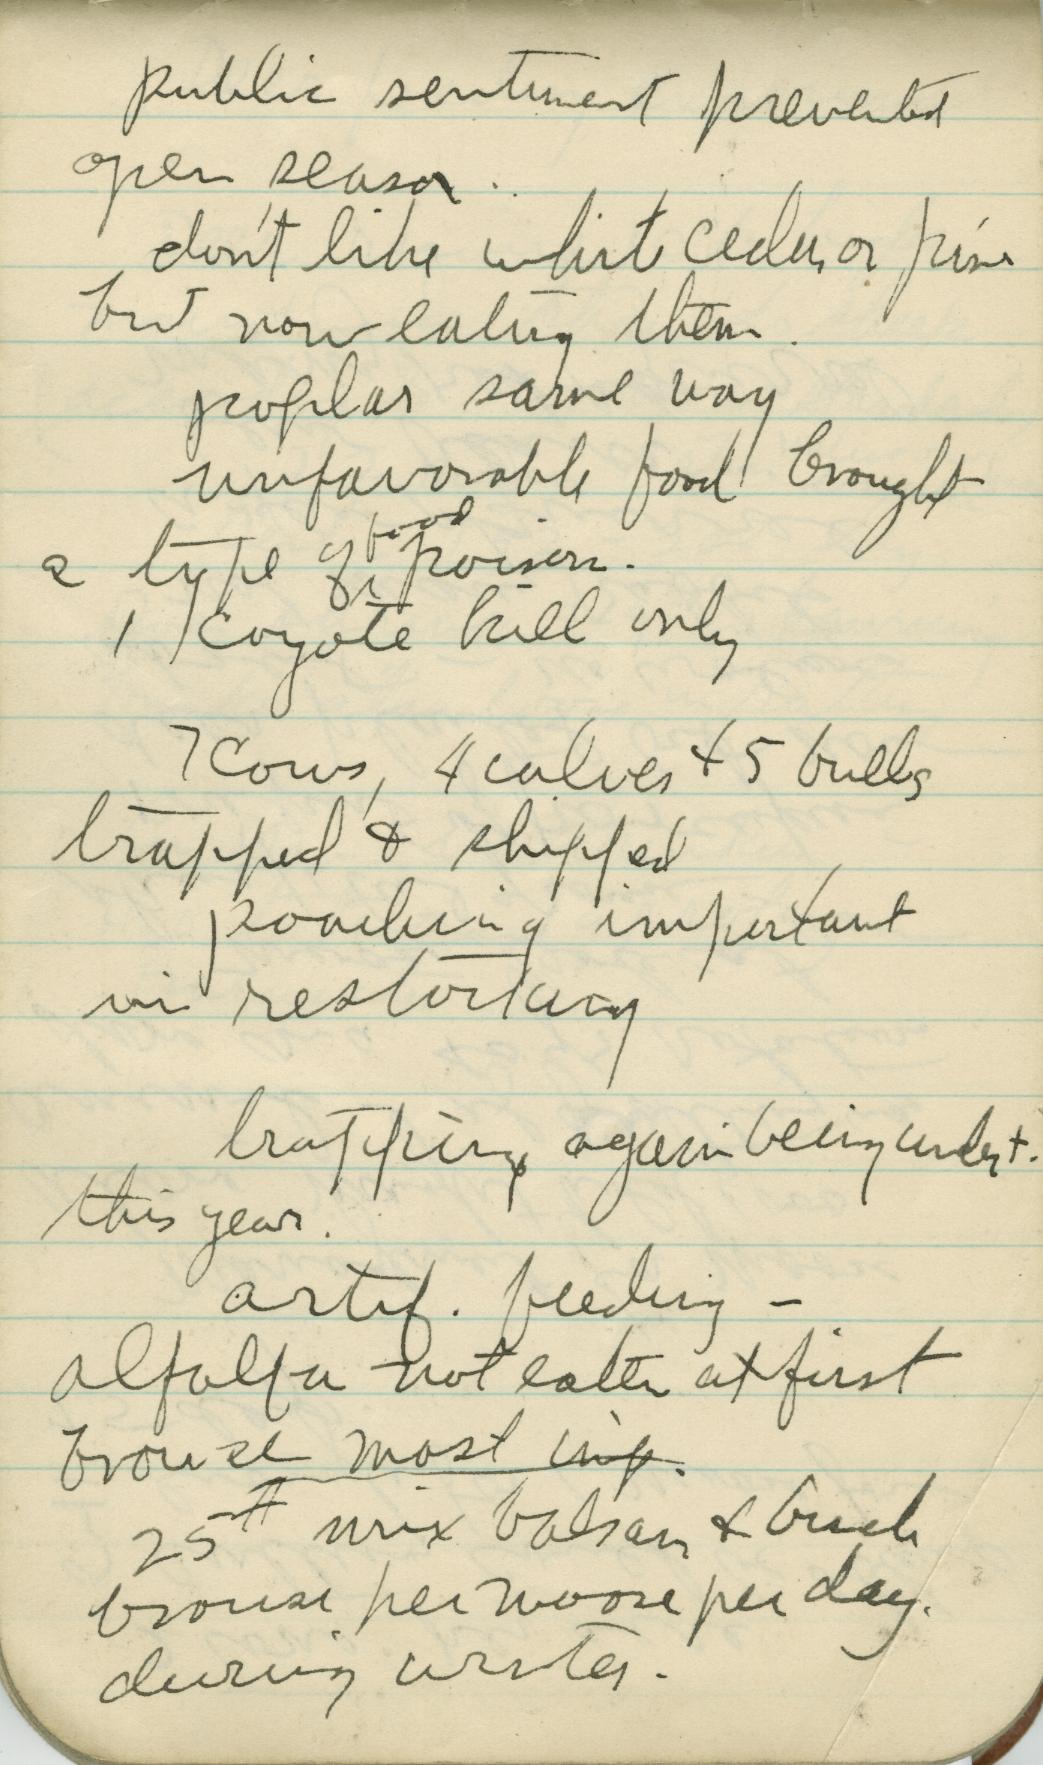 public sentiment prevented
open season.
don't like white cedar, or pine
but now eating them.
poplar same way
unfavorable food brought
a type of food poison.
1 coyote kill only
7 cows, 4 calves + 5 bulls
trapped & shipped
poaching important
in restocking
trapping again being undert.
this year.
artif. feeding -
alfalfa not eaten at first
browse most imp.
25# mix balsam & birch
browse per moose per day.
during winter.